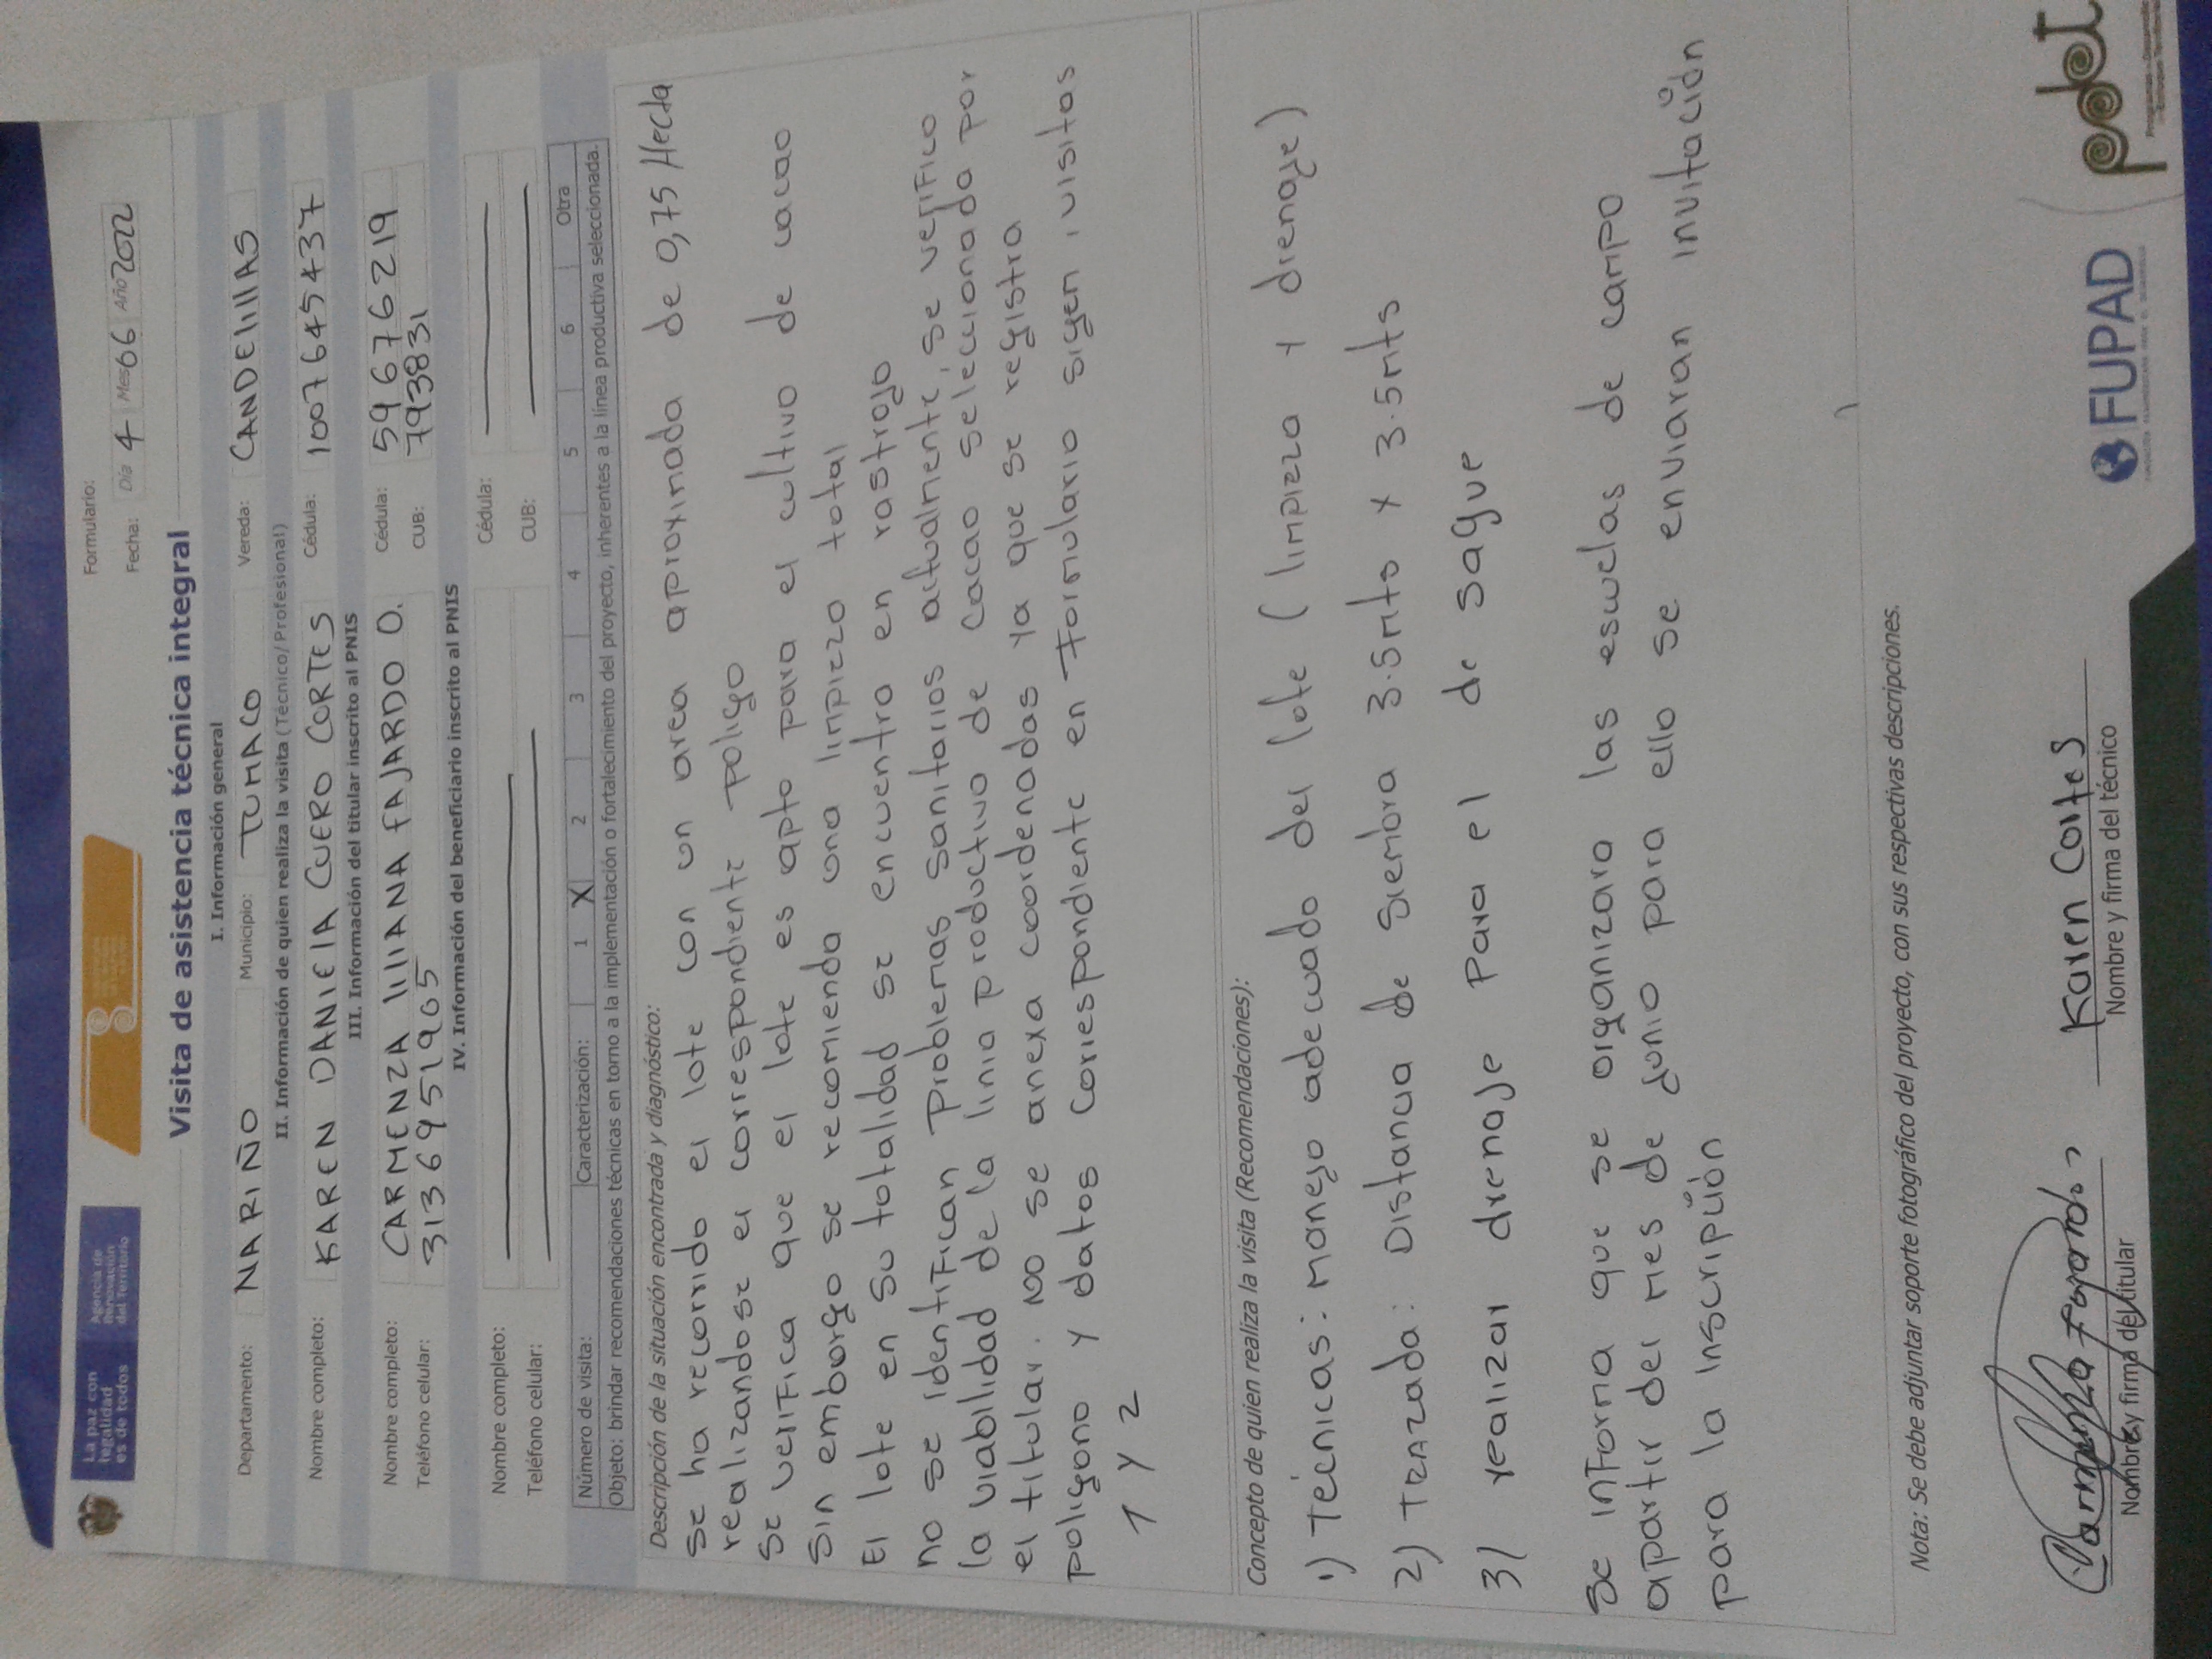 La paz con
legalidad
es de todos
Agencia de
Renovación
del Territorio
Formulario:
Fecha: Día 4 Mes 06 Año 2022
Visita de asistencia técnica integral
I. Información general
Departamento: NARIÑO Municipio: TUMACO Vereda: CANDElIllAS
II. Información de quien realiza la visita (Técnico/Profesional)
Nombre completo: KAREN DANIElA CUERO CORTES Cédula: 1007645437
III. Información del titular inscrito al PNIS
Nombre completo: CARMENZA lIlIANA FAJARDO O. Cédula: 59676219
Teléfono celular: 3136951905 CUB: 793831
IV. Información del beneficiario inscrito al PNIS
Nombre completo: Cédula:
Teléfono celular: CUB:
Número de visita: Caracterización: 1 X 2 3 4 5 6 Otra
Objeto: brindar recomendaciones técnicas en torno a la implementación o fortalecimiento del proyecto, inherentes a la línea productiva seleccionada.
Descripción de la situación encontrada y diagnóstico:
se ha recorrido el lote con un area aproximada de 0,75 Hecta
realizandose el correspondiente poligo
se verifica que el lote es apto para el cultivo de cacao
sin embargo se recomienda una limpieza total
El lote en su totalidad se encuentra en rastrojo
no se identifican Problemas sanitarios actualmente, se verifico
la viabilidad de la linia productivo de cacao seleccionada por
el titular. no se anexa coordenadas ya que se registra
poligono y datos correspondiente en formulario sigen, visitas
1 y 2
Concepto de quien realiza la visita (Recomendaciones):
1) Técnicas: manejo adecuado del lote (limpieza y drienaje)
2) Trazada: Distancia de siembra 3.5mts x 3.5mts
3) realizar drenaje para el de sague
se informa que se organizara las escuelas de campo
apartir del mes de junio para ello se enviaran invitación
para la inscripción
Nota: Se debe adjuntar soporte fotográfico del proyecto, con sus respectivas descripciones.
Carmenza Fajardo
Nombre y firma del titular
Karen Cortes
Nombre y firma del técnico
FUPAD
pdet